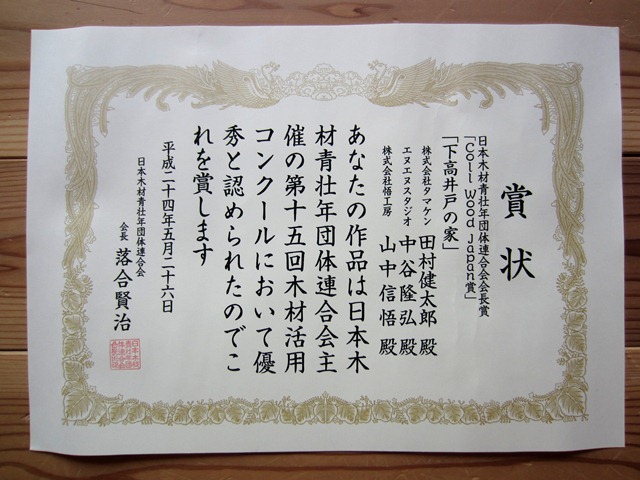 賞状
日本木材青壮年団体連合会会長賞
「Coll Wood Japan賞」
「下高井戸の家」
株式会社タマケン 田村健太郎 殿
エヌエヌスタジオ 中谷隆弘 殿
株式会社悟工房 山中信悟 殿
あなたの作品は日本木
材青壮年団体連合会主
催の第十五回木材活用
コンクールにおいて優
秀と認められたのでこ
れを賞します
平成二十四年五月二十六日
日本木材青壮年団体連合会
会長 落合賢治